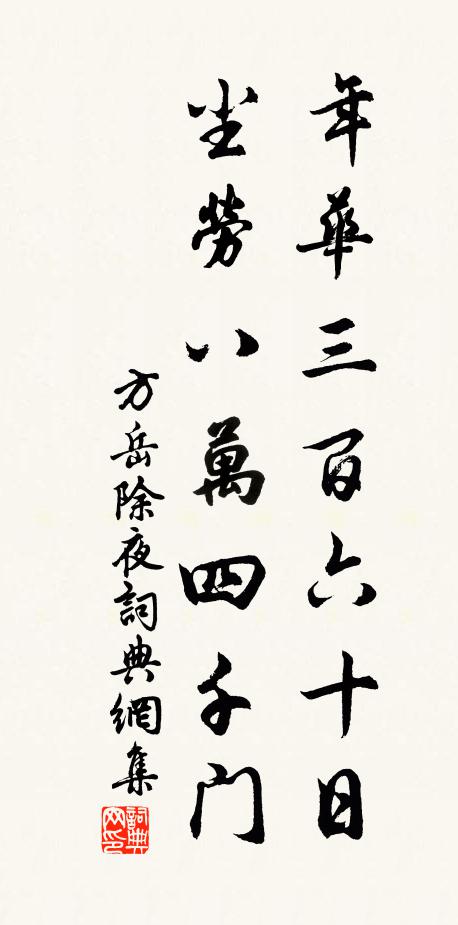 年華三百六十日
尘勞八萬四千門
方岳除夜詞典網集
詞典网印